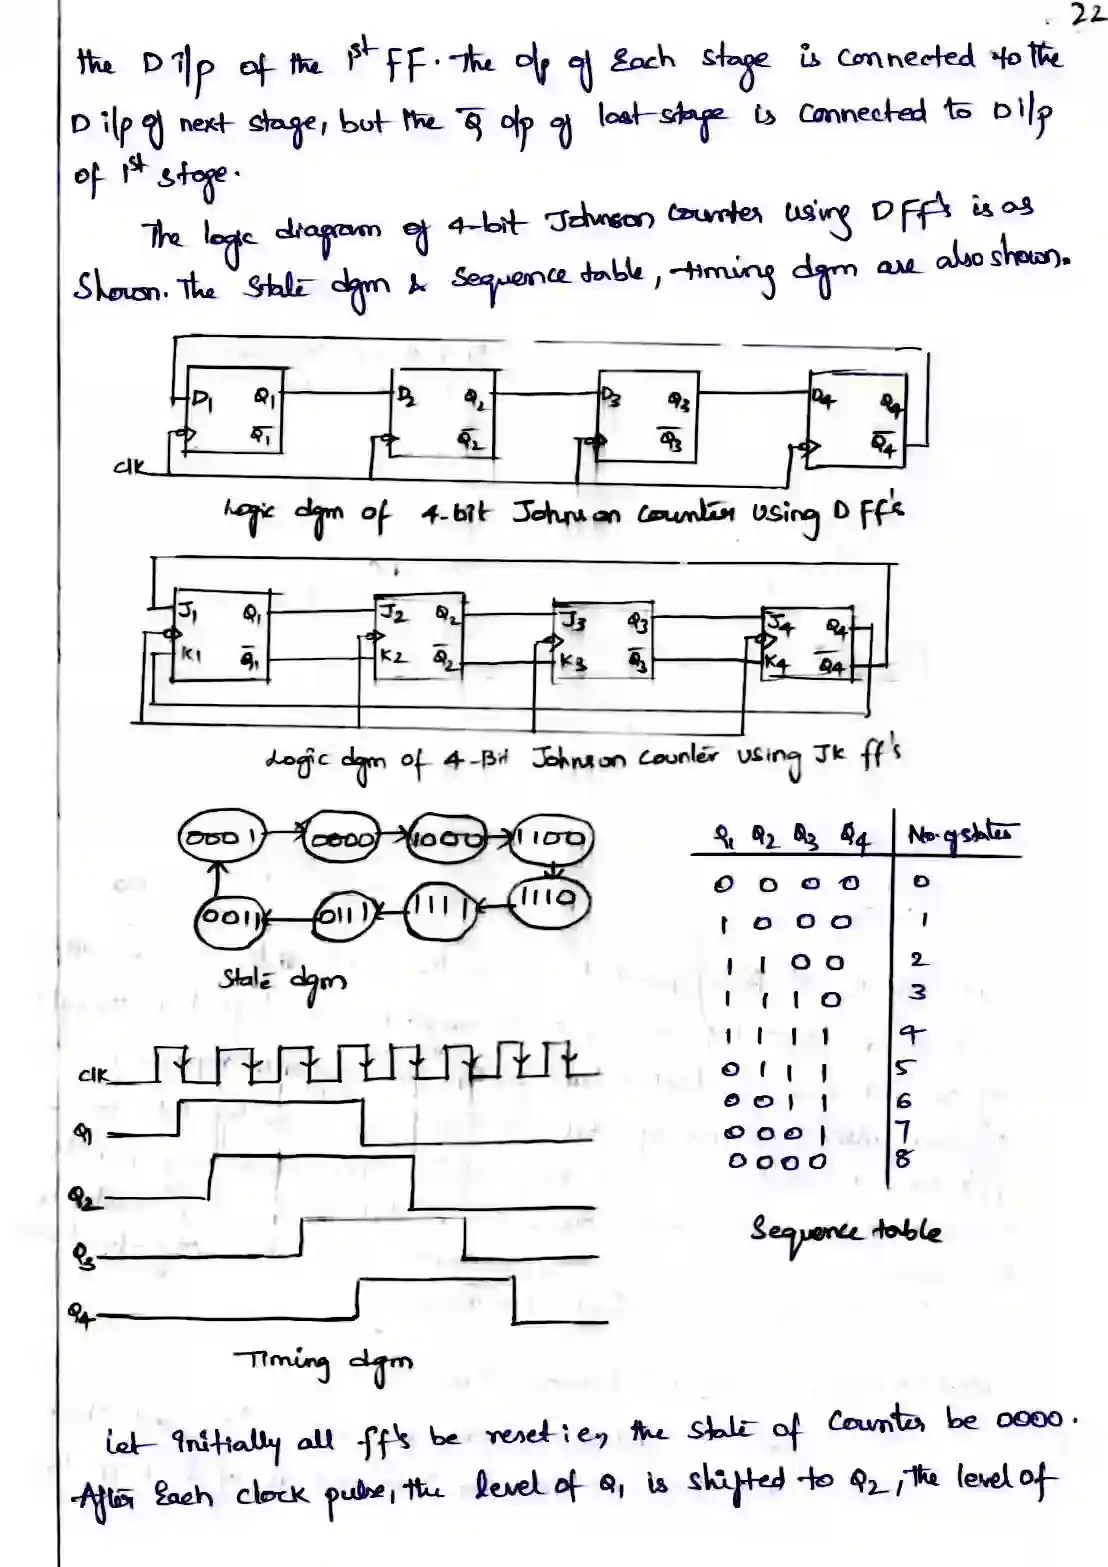 22
the D i/p of the 1st FF. The o/p of Each stage is connected to the
D i/p of next stage, but the Q̅ o/p of last stage is connected to D i/p
of 1st stage.
The logic diagram of 4-bit Johnson counter using D FF's is as
Shown. The State dgm & sequence table, timing dgm are also shown.
D1 Q1 D2 Q2 D3 Q3 D4 Q4
Q̅1 Q̅2 Q̅3 Q̅4
clk
Logic dgm of 4-bit Johnson counter using D FF's
J1 Q1 J2 Q2 J3 Q3 J4 Q4
K1 Q̅1 K2 Q̅2 K3 Q̅3 K4 Q̅4
Logic dgm of 4-Bit Johnson counter using JK ff's
0001 0000 1000 1100
0011 0111 1111 1110
State dgm
Q1 Q2 Q3 Q4 No. of states
0 0 0 0 0
1 0 0 0 1
1 1 0 0 2
1 1 1 0 3
1 1 1 1 4
0 1 1 1 5
0 0 1 1 6
0 0 0 1 7
0 0 0 0 8
Sequence table
clk
Q1
Q2
Q3
Q4
Timing dgm
Let Initially all ff's be reset ie, the state of Counter be 0000.
After Each clock pulse, the level of Q1 is shifted to Q2, the level of